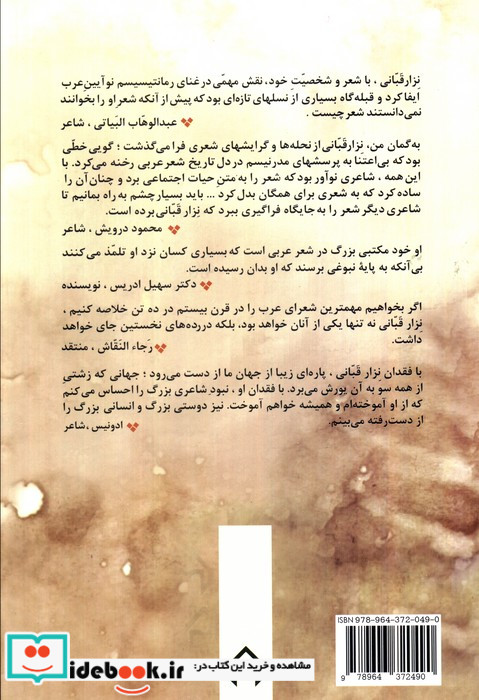 نزار قَبّانی ، با شعر و شخصیّتِ خود، نقش مهمّی در غنای رمانتیسیسم نوآیینِ عرب
ایفا کرد و قبله‌گاه بسیاری از نسلهای تازه‌ای بود که پیش از آنکه شعر او را بخوانند
نمی‌دانستند شعر چیست .
عبدالوهّاب البَیاتی ، شاعر
به‌گمان من، نزار قبّانی از نحله‌ها و گرایشهای شعری فرا می‌گذشت ؛ گویی خطّی
بود که بی‌اعتنا به پرسشهای مدرنیسم در دل تاریخ شعر عربی رخنه می‌کرد. با
این همه ، شاعری نوآور بود که شعر را به متنِ حیات اجتماعی برد و چنان آن را
ساده کرد که به شعری برای همگان بدل کرد ... باید بسیار چشم به راه بمانیم تا
شاعری دیگر شعر را به جایگاه فراگیری ببرد که نِزار قَبّانی برده است.
محمود درویش ، شاعر
او خود مکتبی بزرگ در شعر عربی است که بسیاری کسان نزد او تلمّذ می‌کنند
بی‌آنکه به پایهٔ نبوغی برسند که او بدان رسیده است.
دکتر سهیل ادریس ، نویسنده
اگر بخواهیم مهمترین شعرای عرب را در قرن بیستم در ده تن خلاصه کنیم ،
نزار قَبّانی نه تنها یکی از آنان خواهد بود، بلکه در رده‌های نخستین جای خواهد
داشت.
رَجاء النَقّاش ، منتقد
با فقدان نزار قَبّانی ، پاره‌ای زیبا از جهان ما از دست می‌رود ؛ جهانی که زشتی
از همه سو به آن یورش می‌برد. با فقدان او ، نبود شاعری بزرگ را احساس می‌کنم
که از او آموخته‌ام و همیشه خواهم آموخت. نیز دوستی بزرگ و انسانی بزرگ را
از دست‌رفته می‌بینم.
ادونیس ، شاعر
ISBN 978-964-372-049-0
9 78964 372490
مشاهده و خرید این کتاب در:
idebook.ir